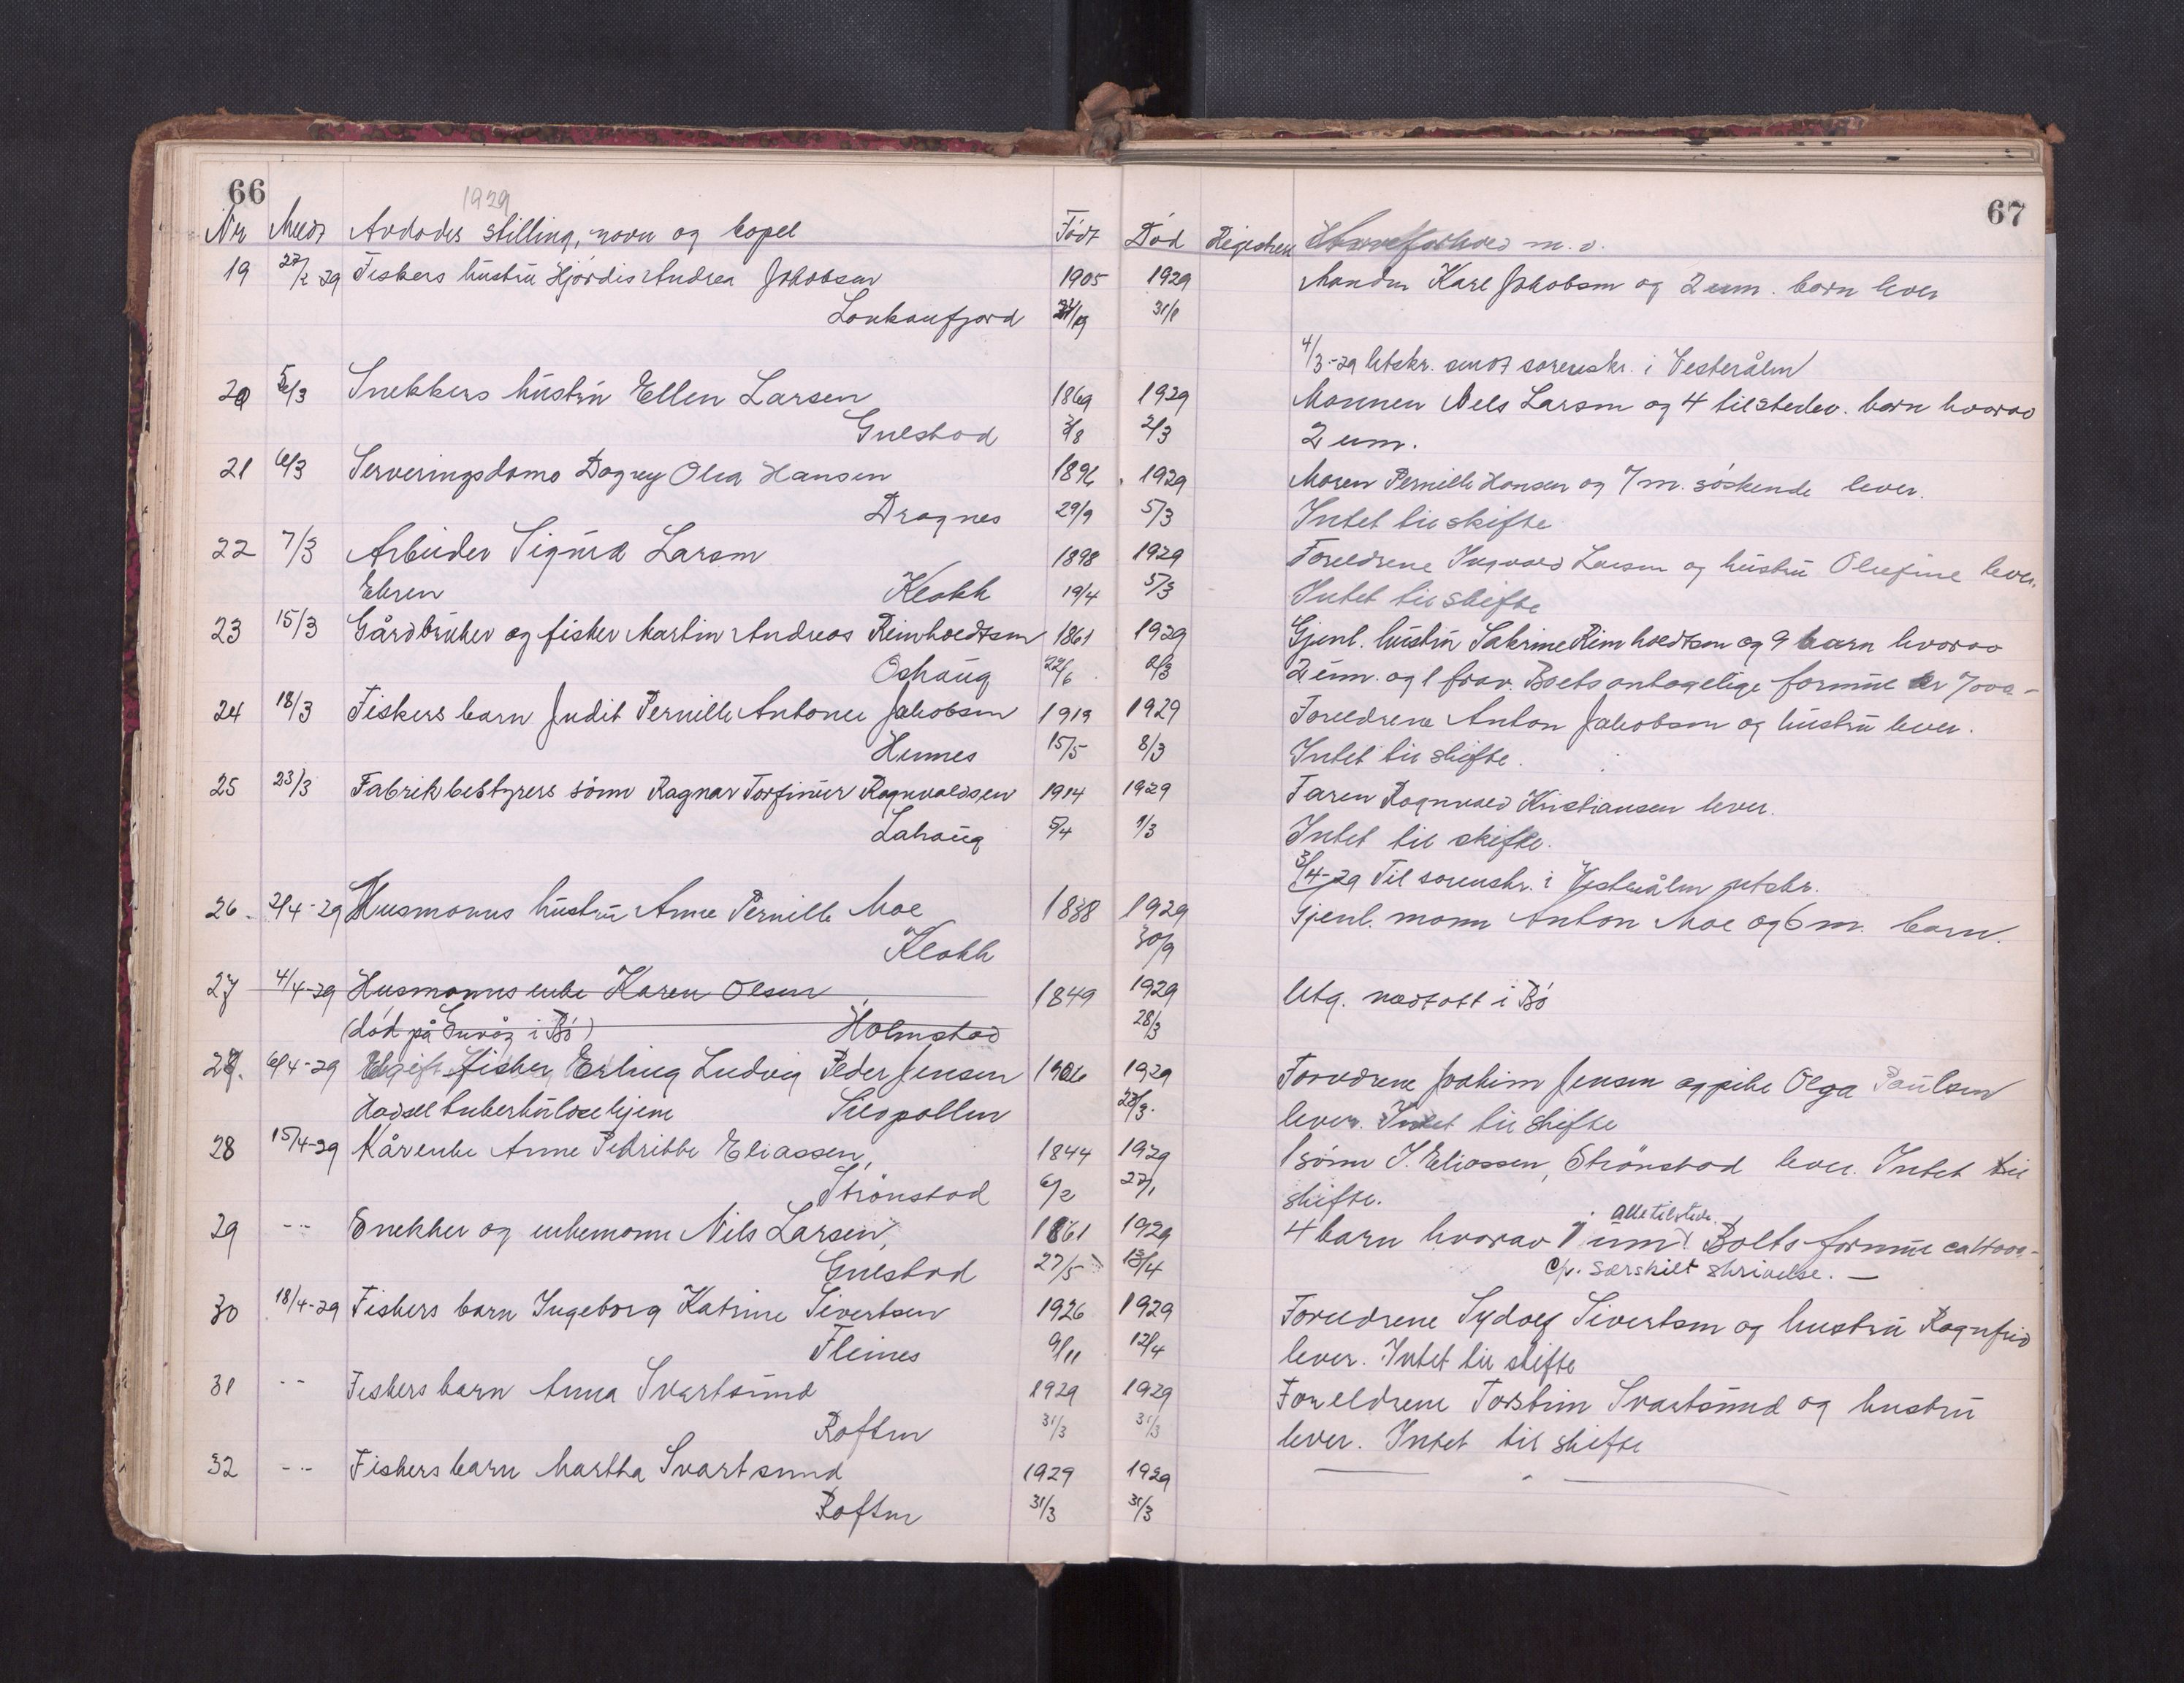 66
67
1929
Nr Meldt Avdødes stilling, navn og bopel Født Død Registrert m. v.
19 27/2 29 Fiskers hustru Hjørdis Andrea Jakobsen 1905 1929 Manden Karl Jakobsen og 2 um. barn lever
Lonkanfjord 31/1
4/3-29 Utskr. sendt sorenskr. i Vesterålen
20 5/3 Snekkers hustru Ellen Larsen 1869 1929 Mannen Nels Larsen og 4 tilstedev. barn hvorav
Guldstad 2/3 2 um.
21 6/3 Serveringsdame Dagny Olea Hansen 1896 1929 Moren Pernille Hansen og 7 m. søskende lever.
Dragnes 29/9 5/3 Intet til skifte
22 7/3 Arbeider Sigurd Larsen 1898 1929 Foreldrene Ingvald Larsen og hustru Olufine lever.
Klakk 19/4 5/3 Intet til skifte
23 15/3 Gårdbruker og fisker Martin Andreas Reinholdtsen 1861 1929 Gjenl. hustru Sakrine Reinholdtsen og 9 barn hvorav
Oshaug 22/6 2/3 2 um. og 1 frav. Boets antagelige formue er 7000-
24 18/3 Fiskers barn Judit Pernille Antonie Jakobsen 1919 1929 Foreldrene Anton Jakobsen og hustru lever.
Hennes 15/5 8/3 Intet til skifte.
25 23/3 Fabrikbestyrers sønn Ragnar Torfinur Ragnvaldsen 1914 1929 Faren Ragnvald Kristiansen lever.
Lahaug 5/4 1/3 Intet til skifte.
3/4-29 Til sorenskr. i Vesterålen utskr.
26. 2/4-29 Husmanns hustru Anne Pernille Moe 1838 1929 Gjenl. mann Anton Moe og 6 m. barn.
Klakk 30/9
27 4/4-29 Husmanns enke Karen Olsen 1849 1929 Utg. nedtatt i Bø
(død på i Bø) Holmstad 28/3
27. 6/4-29 Ugift fisker Erling Ludvig Peder Jensen 1906 1929 Foreldrene Joakim Jensen og pike Olga Paulsen
Hadsel tuberkulosehjem Sildpollen 28/3. lever. Intet til skifte
28 15/4-29 Kårenke Anne Petribbe Eliassen, 1844 1929 1 sønn J. Eliassen, Strønstad lever. Intet til
Strønstad 6/2 27/1 skifte.
29 -"- Snekker og enkemann Nils Larsen, 1861 1929 4 barn hvorav 1 um. alle tilstede. Boets formue ca 4000-
Guldstad 27/5 13/4 c/v. særskilt skrivelse. —
30 18/4-29 Fiskers barn Ingeborg Katrine Sivertsen 1926 1929 Foreldrene Sydolf Sivertsen og hustru Ragnfrid
Fleines 9/11 12/4 lever. Intet til skifte
31 -"- Fiskers barn Anna Svartsund 1929 1929 Foreldrene Torstein Svartsund og hustru
Raften 31/3 31/3 lever. Intet til skifte
32 -"- Fiskers barn Martha Svartsund 1929 1929 — " —
Raften 31/3 31/3